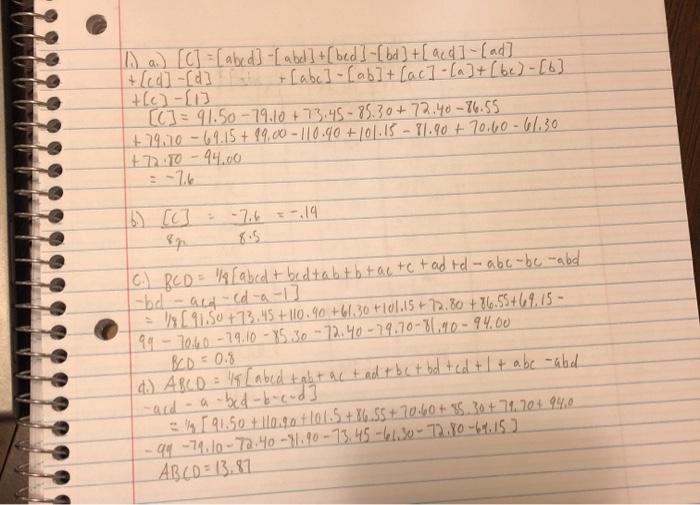 1.) a.) [C] = [abcd] - [abd] + [bcd] - [bd] + [acd] - [ad]
+ [cd] - [d] + [abc] - [ab] + [ac] - [a] + [bc] - [b]
+ [c] - [1]
[C] = 91.50 - 79.10 + 73.45 - 85.30 + 72.40 - 86.55
+ 79.70 - 69.15 + 99.00 - 110.90 + 101.15 - 81.90 + 70.60 - 61.30
+ 72.80 - 94.00
= -7.6
b.) [C] = -7.6 = -.19
8n 8.5
c.) BCD = 1/8 [abcd + bcd + ab + b + ac + c + ad + d - abc - bc - abd
- bd - acd - cd - a - 1]
= 1/8 [91.50 + 73.45 + 110.90 + 61.30 + 101.15 + 72.80 + 86.55 + 69.15 -
99 - 70.60 - 79.10 - 85.30 - 72.40 - 79.70 - 81.90 - 94.00
BCD = 0.8
d.) ABCD = 1/8 [abcd + ab + ac + ad + bc + bd + cd + 1 + abc - abd
- acd - a - bcd - b - c - d]
= 1/8 [91.50 + 110.90 + 101.5 + 86.55 + 70.60 + 85.30 + 79.70 + 94.0
- 99 - 79.10 - 72.40 - 81.90 - 73.45 - 61.30 - 72.80 - 69.15]
ABCD = 13.87